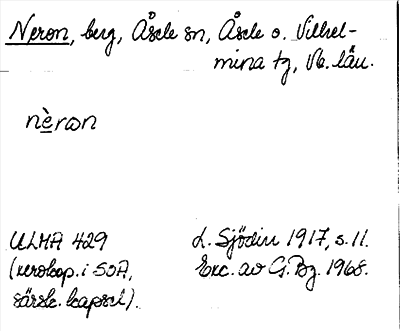 Neron, berg, Åsele sn, Åsele o. Vilhel-
mina tg, Vb. län.
nèrωn
ULMA 429 L. Sjödin 1917, s. 11.
(xerokop. i SOA, Exc. av G. Bg. 1968.
särsk. kapsel).